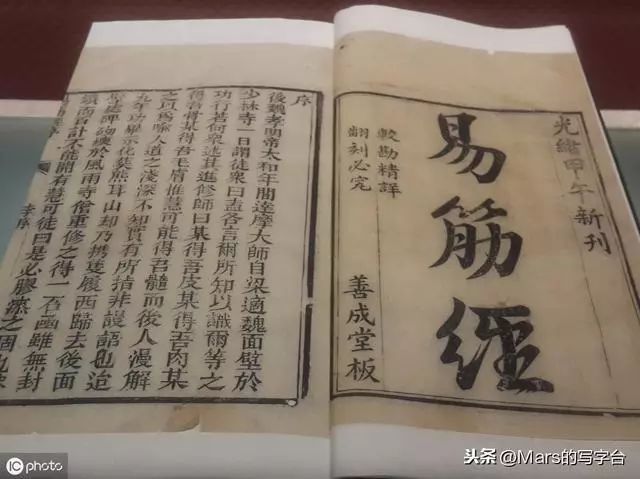 光緒甲午新刊
易筋經
較勘精詳
翻刻必究
善成堂板
序
後魏孝明帝太和年間達摩大師自梁適魏面壁於
少林寺一日謂徒衆曰盍各言爾所知以識爾等之
功行若何衆述其進修師曰某得吾皮某得吾肉某
得吾骨某得吾毛眉惟慧可能得吾髓而後人漫解
之以爲喻人道之淺深不知實有所指非謾語也迨
九年功畢示化葬熊耳山却乃攜隻履西歸去後面
壁處碑砌壞於風雨寺僧重修之得一石函雖無封
鎖而百計不能開有慧可徒曰是必膠漆之固也
李序
iC photo
头条 @Mars的写字台